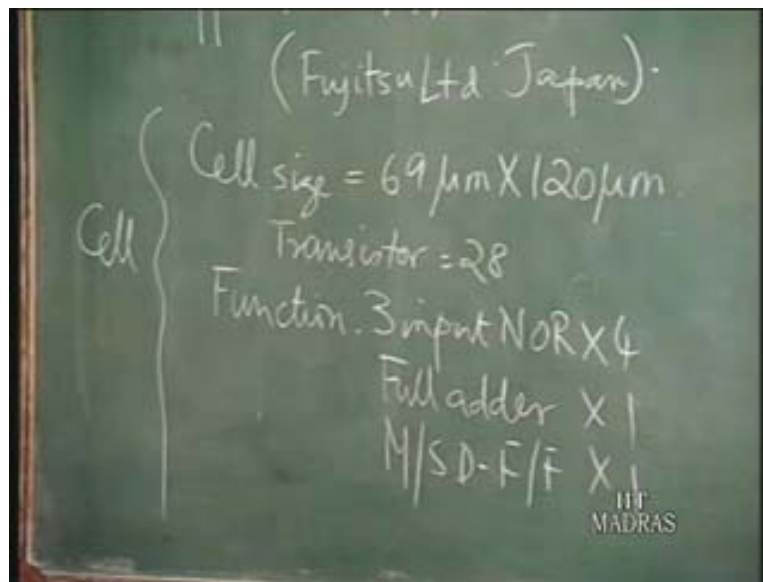 (Fujitsu Ltd. Japan).
Cell size = 69 μm X 120 μm.
Cell
Transistor = 28
Function. 3 input NOR X 4
Full adder X 1
M/S D-F/F X 1
IIT
MADRAS